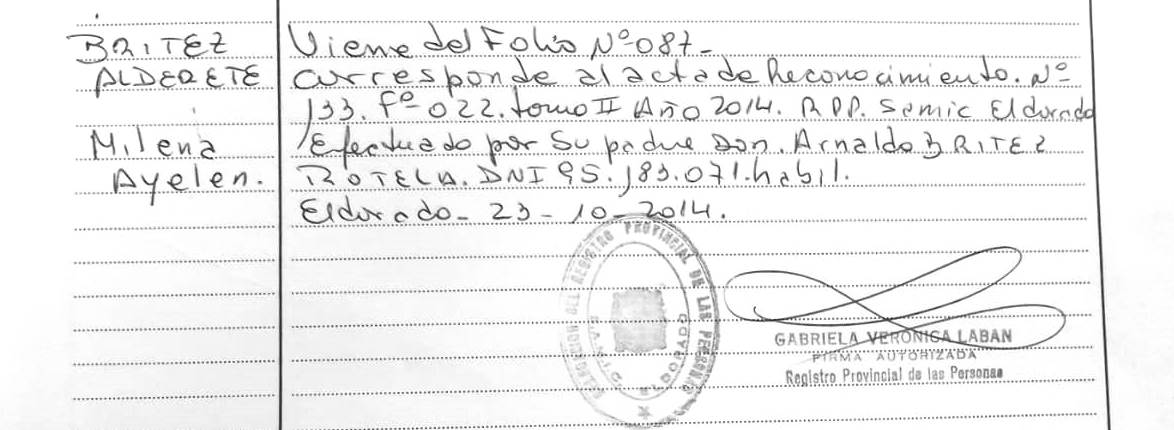 BRITEZ
ALDERETE
Milena
Ayelen.
Viene del Folio Nº 087-
Corresponde al acta de Reconocimiento. Nº
133. Fº 022. tomo II Año 2014. RPP. Samic Eldorado
Efectuado por Su padre Don. Arnaldo BRITEZ
ROTELA. DNI 95.183.071. habil.
Eldorado- 23-10-2014.
REGISTRO PROVINCIAL DE LAS PERSONAS
S.A.M.I.C. ELDORADO
GABRIELA VERONICA LABAN
FIRMA AUTORIZADA
Registro Provincial de las Personas